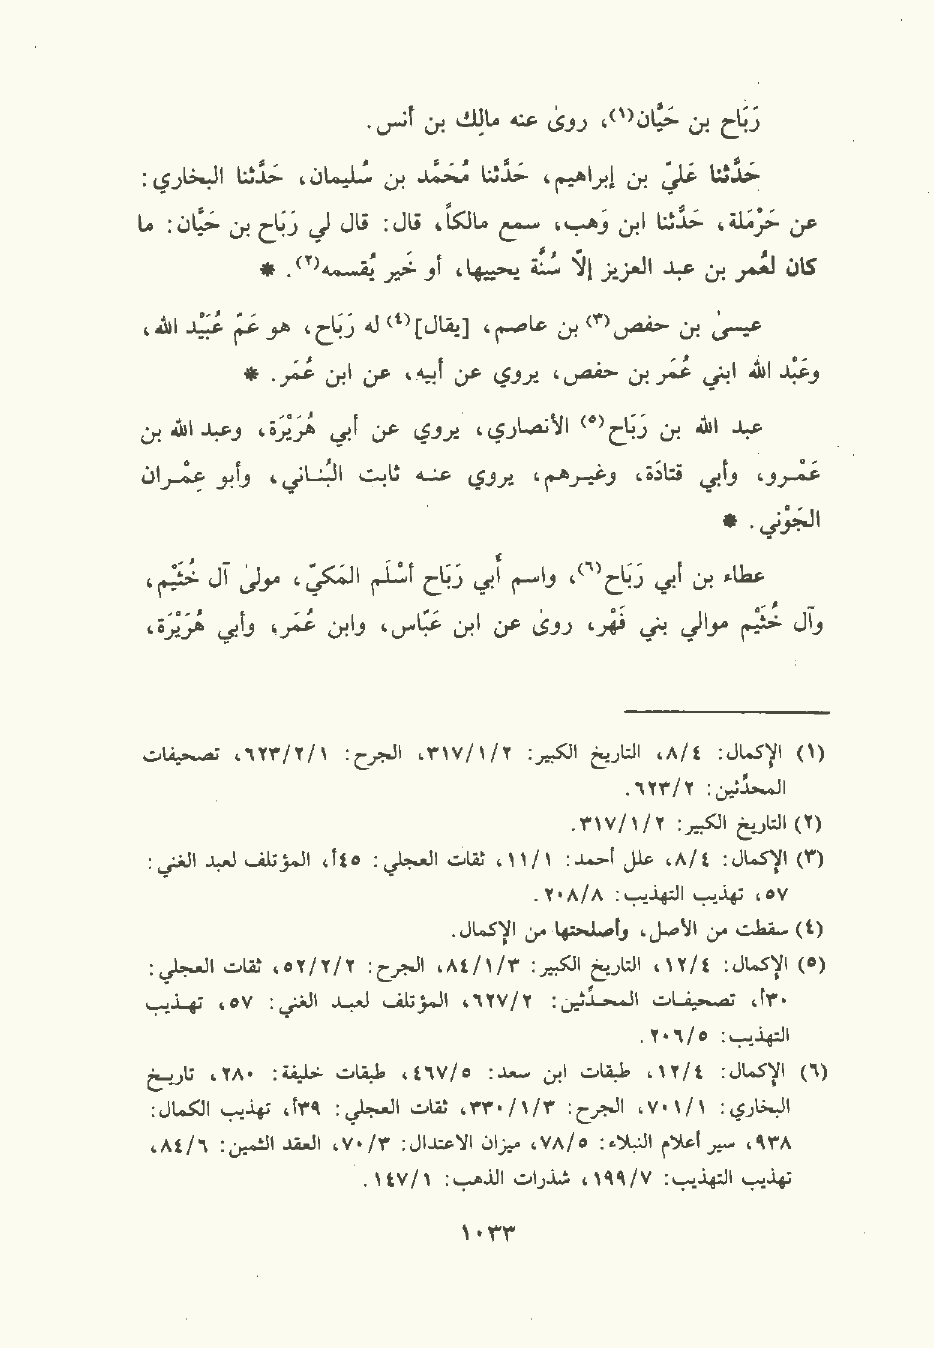 رَبَاح بن حَيَّان(١)، روىٰ عنه مالِك بن أنس.
حَدَّثنا عَليّ بن إبراهيم، حَدَّثنا مُحَمَّد بن سُليمان، حَدَّثنا البخاري:
عن حَرْمَلة، حَدَّثنا ابن وَهب، سمع مالكاً، قال: قال لي رَبَاح بن حَيَّان: ما
كان لعُمر بن عبد العزيز إلاَّ سُنَّة يحييها، أو خَير يُقسمه(٢). *
عيسىٰ بن حفص(٣) بن عاصم، [يقال](٤) له رَبَاح، هو عَمّ عُبَيْد الله،
وعَبْد الله ابني عُمَر بن حفص، يروي عن أبيه، عن ابن عُمَر. *
عبد الله بن رَبَاح(٥) الأنصاري، يروي عن أبي هُرَيْرَة، وعبد الله بن
عَمْرو، وأبي قتادَة، وغيرهم، يروي عنه ثابت البُنَاني، وأبو عِمْران
الجَوْني. *
عطاء بن أبي رَبَاح(٦)، واسم أبي رَبَاح أسْلَم المَكيّ، مولىٰ آل خُثَيْم،
وآل خُثَيْم موالي بني فَهْر، روىٰ عن ابن عَبَّاس، وابن عُمَر، وأبي هُرَيْرَة،
(١) الإكمال: ٤/٨، التاريخ الكبير: ٢/١/٣١٧، الجرح: ١/٢/٦٢٣، تصحيفات
المحدّثين: ٢/٦٢٣.
(٢) التاريخ الكبير: ٢/١/٣١٧.
(٣) الإكمال: ٤/٨، علل أحمد: ١/١١، ثقات العجلي: ٤٥أ، المؤتلف لعبد الغني:
٥٧، تهذيب التهذيب: ٨/٢٠٨.
(٤) سقطت من الأصل، وأصلحتها من الإكمال.
(٥) الإكمال: ٤/١٢، التاريخ الكبير: ٣/١/٨٤، الجرح: ٢/٢/٥٢، ثقات العجلي:
٣٠أ، تصحيفات المحدّثين: ٢/٦٢٧، المؤتلف لعبد الغني: ٥٧، تهذيب
التهذيب: ٥/٢٠٦.
(٦) الإكمال: ٤/١٢، طبقات ابن سعد: ٥/٤٦٧، طبقات خليفة: ٢٨٠، تاريخ
البخاري: ١/٧٠١، الجرح: ٣/١/٣٣٠، ثقات العجلي: ٣٩أ، تهذيب الكمال:
٩٣٨، سير أعلام النبلاء: ٥/٧٨، ميزان الاعتدال: ٣/٧٠، العقد الثمين: ٦/٨٤،
تهذيب التهذيب: ٧/١٩٩، شذرات الذهب: ١/١٤٧.
١٠٣٣